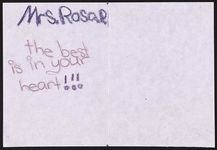 Mrs. Rosae
the best
is in your
heart!!!